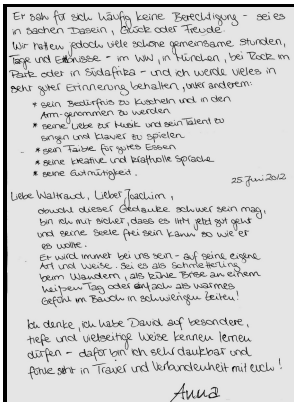 Er sah für sich häufig keine Berechtigung - sei es
in Sachen Dasein, Glück oder Freude.
Wir hatten jedoch viele schöne gemeinsame Stunden,
Tage und Erlebnisse - im WW, in München, bei Rock im
Park oder in Südafrika - und ich werde vieles in
sehr guter Erinnerung behalten, unter anderem:
* sein Bedürfnis zu Kuscheln und in den
Arm-genommen zu werden
* seine Liebe zur Musik und sein Talent zu
singen und Klavier zu spielen
* sein Faible für gutes Essen
* seine kreative und kraftvolle Sprache
* seine Gutmütigkeit.
25 Juni 2012
Liebe Waltraud, Lieber Joachim,
obwohl dieser Gedanke schwer sein mag,
bin ich mir sicher, dass es ihm jetzt gut geht
und seine Seele frei sein kann so wie er
es wollte.
Er wird immer bei uns sein - auf seine eigene
Art und Weise. sei es als Schmetterling
beim Wandern, als kühle Brise an einem
heißen Tag oder einfach als warmes
Gefühl im Bauch in schwierigen Zeiten!
Ich denke, ich habe David auf besondere,
tiefe und vielseitige Weise kennen lernen
dürfen - dafür bin ich sehr dankbar und
fühle mit in Trauer und Verbundenheit mit euch!
Anna